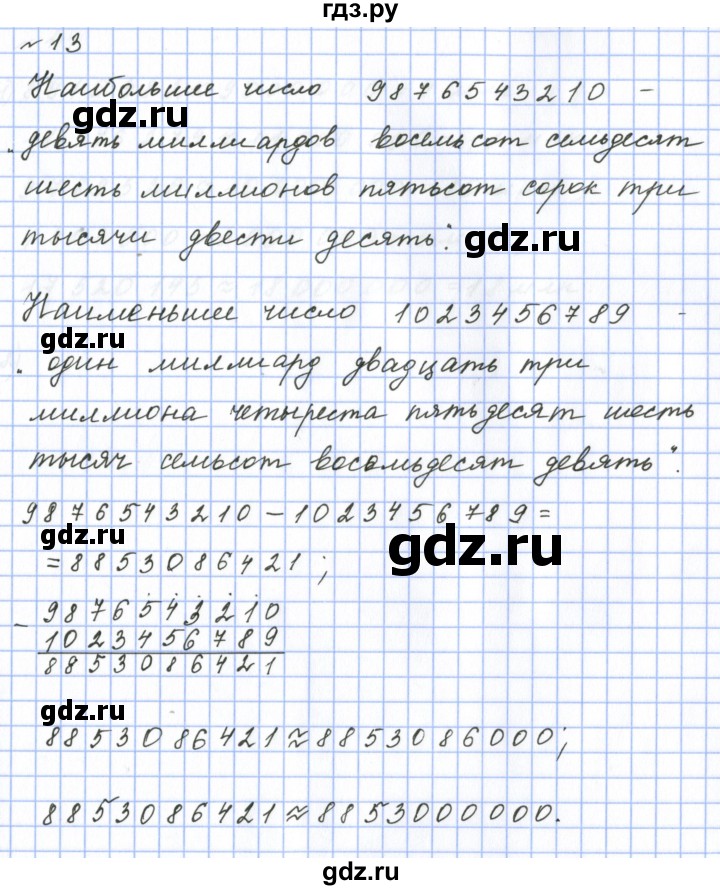 гдз.ру
№ 13
Наибольшее число 9876543210 –
gdz.ru
„девять миллиардов восемьсот семьдесят
шесть миллионов пятьсот сорок три
тысячи двести десять“.
gdz.ru
Наименьшее число 1023456789 -
gdz.ru
„один миллиард двадцать три
миллиона четыреста пятьдесят шесть
тысяч семьсот восемьдесят девять“.
9876543210 – 1023456789 =
gdz.ru
gdz.ru
= 8853086421;
9876543210
– 1023456789
8853086421
gdz.ru
8853086421 ≈ 8853086000;
8853086421 ≈ 8853000000.
gdz.ru